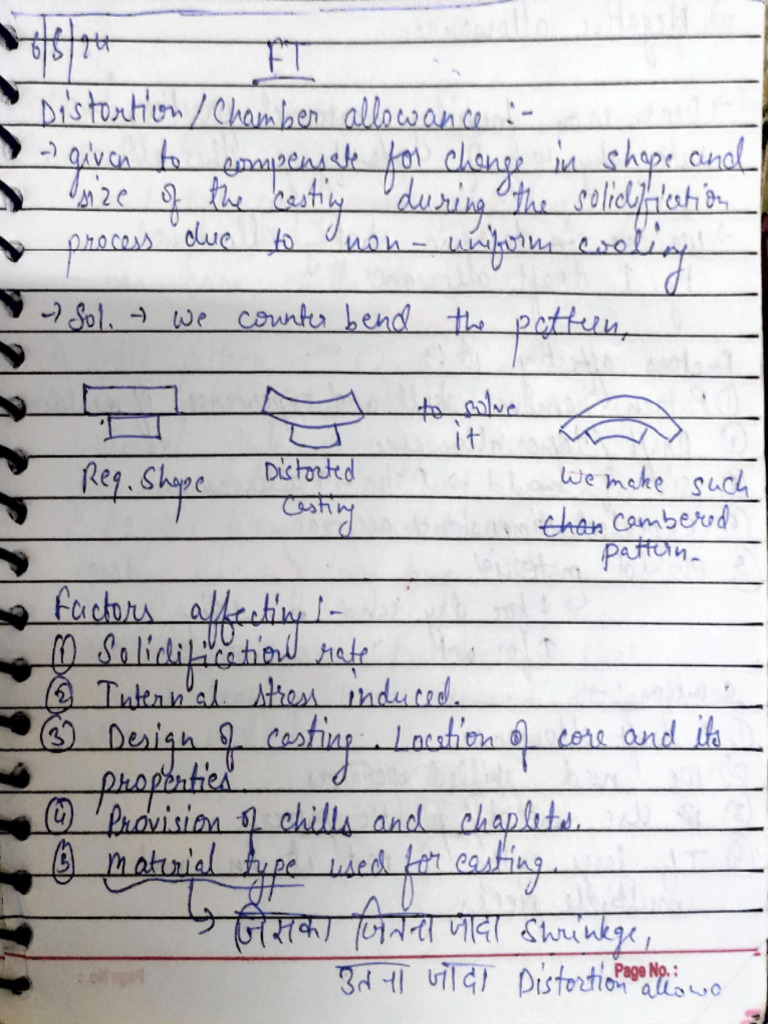 6/5/24
FT
Distortion/Chamber allowance :-
→ given to compensate for change in shape and
size of the casting during the solidification
process due to non-uniform cooling
→ Sol. → we counter bend the pattern.
Req. Shape
Distorted
casting
to solve
it
we make such
chan cambered
pattern.
Factors affecting :-
① Solidification rate
② Internal stress induced.
③ Design of casting. Location of core and its
properties.
④ Provision of chills and chaplets.
⑤ Material type used for casting.
↳ जिसका जितना जादा shrinkge,
उतना जादा Distortion allowa
Page No.: